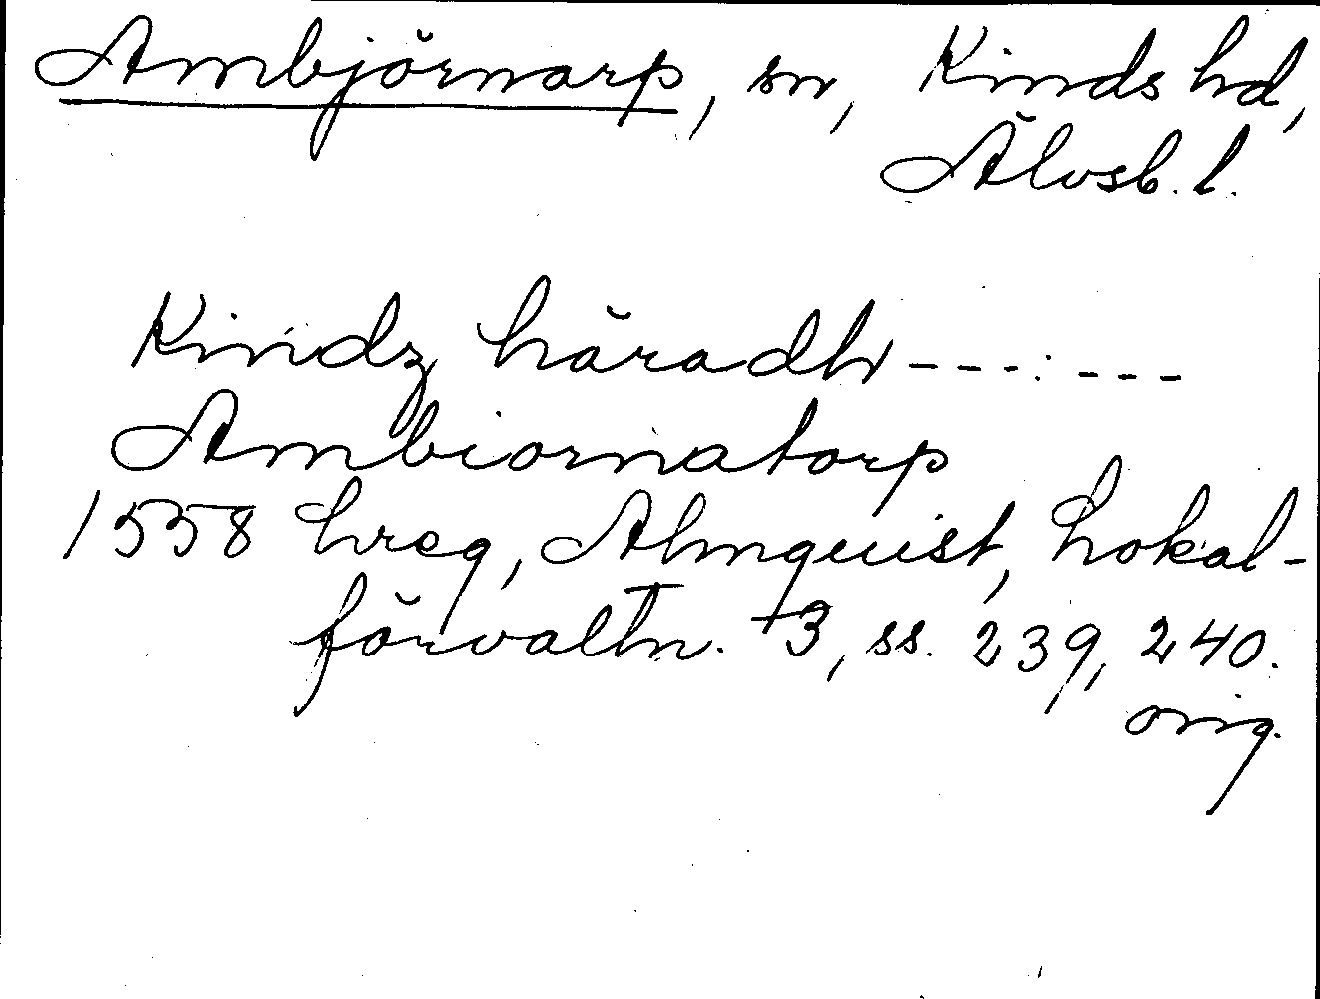 Ambjörnarp, sn, Kinds hd,
Älvsb. l.
Kindz häradh ---:---
Ambiornatorp
1558 hreg, Almquist, Lokal-
förvaltn. 3, ss. 239, 240.
orig.